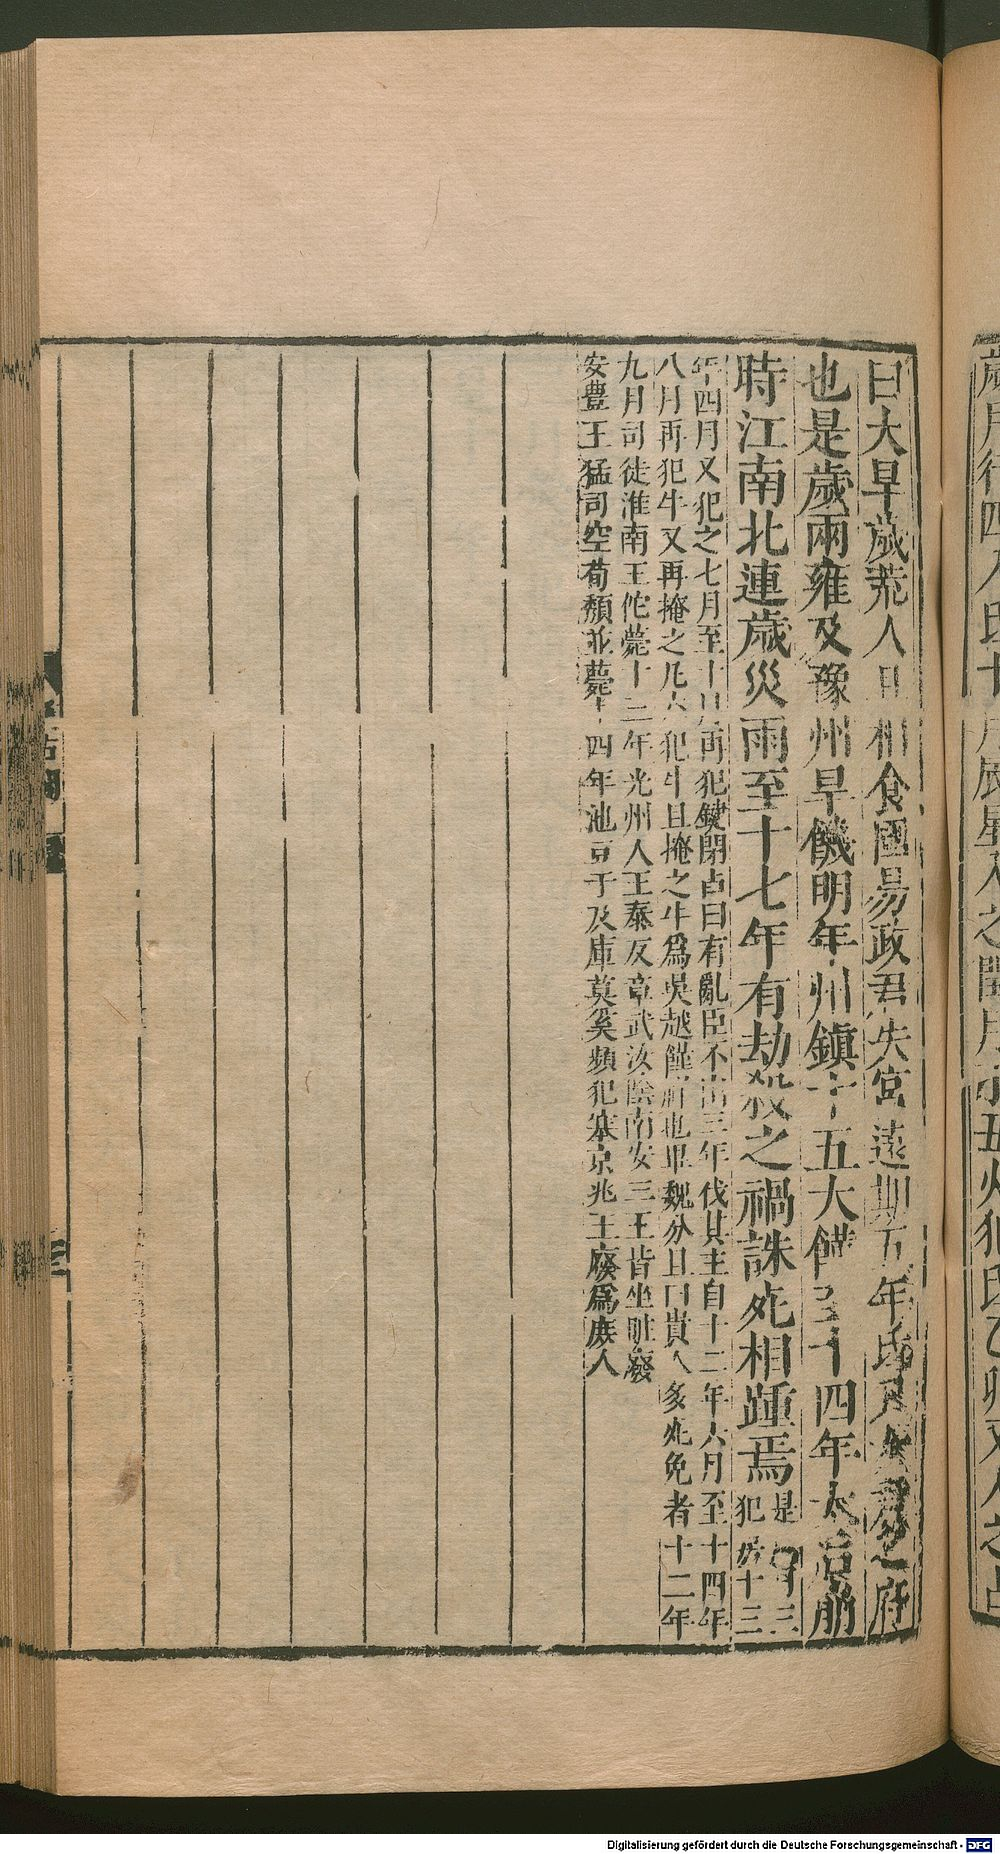 曰大旱歲荒人且相食國易政君失宮遠期五年
也是歲兩雍及豫州旱饑明年州鎮十五大饉至十四年太后崩
時江南北連歲災雨至十七年有劫殺之禍誅死相踵焉是
月三
犯 十三
年四月又犯之七月至十月再犯鍵閉占曰有亂臣不出三年伐其主自十二年六月至十四年
八月再犯牛又再掩之凡六犯牛且掩之牛為吳越饉祈也畢魏分且曰貴人多死免者十二年
九月司徒淮南王佗薨十三年光州人王泰反章武汝陰南安三王皆坐贓廢
安豊王猛司空荀頹並薨十四年池豆于及庫莫奚頻犯塞京兆王廢爲庶人
歲月行四入氐十月辰星入之閏月
丑火犯氐乙卯又入之占
Digitalisierung gefördert durch die Deutsche Forschungsgemeinschaft - DFG